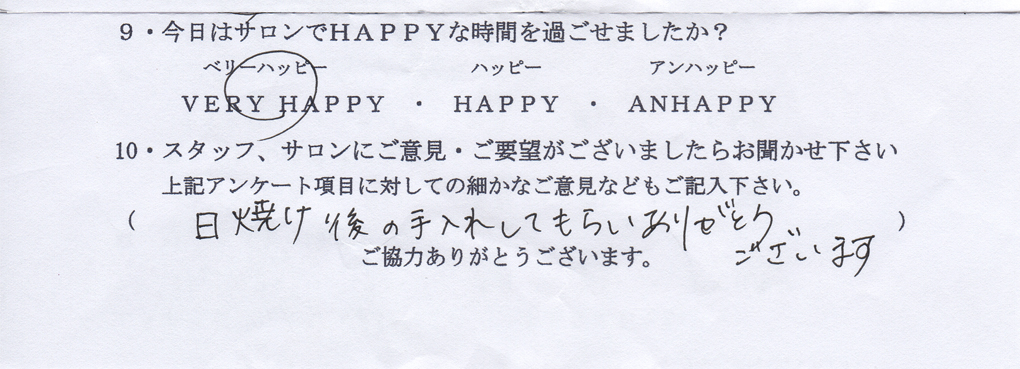 9・今日はサロンでHAPPYな時間を過ごせましたか？
ベリーハッピー ハッピー アンハッピー
VERY HAPPY ・ HAPPY ・ ANHAPPY
10・スタッフ、サロンにご意見・ご要望がございましたらお聞かせ下さい
上記アンケート項目に対しての細かなご意見などもご記入下さい。
( 日焼け後の手入れしてもらいありがとう )
ございます
ご協力ありがとうございます。